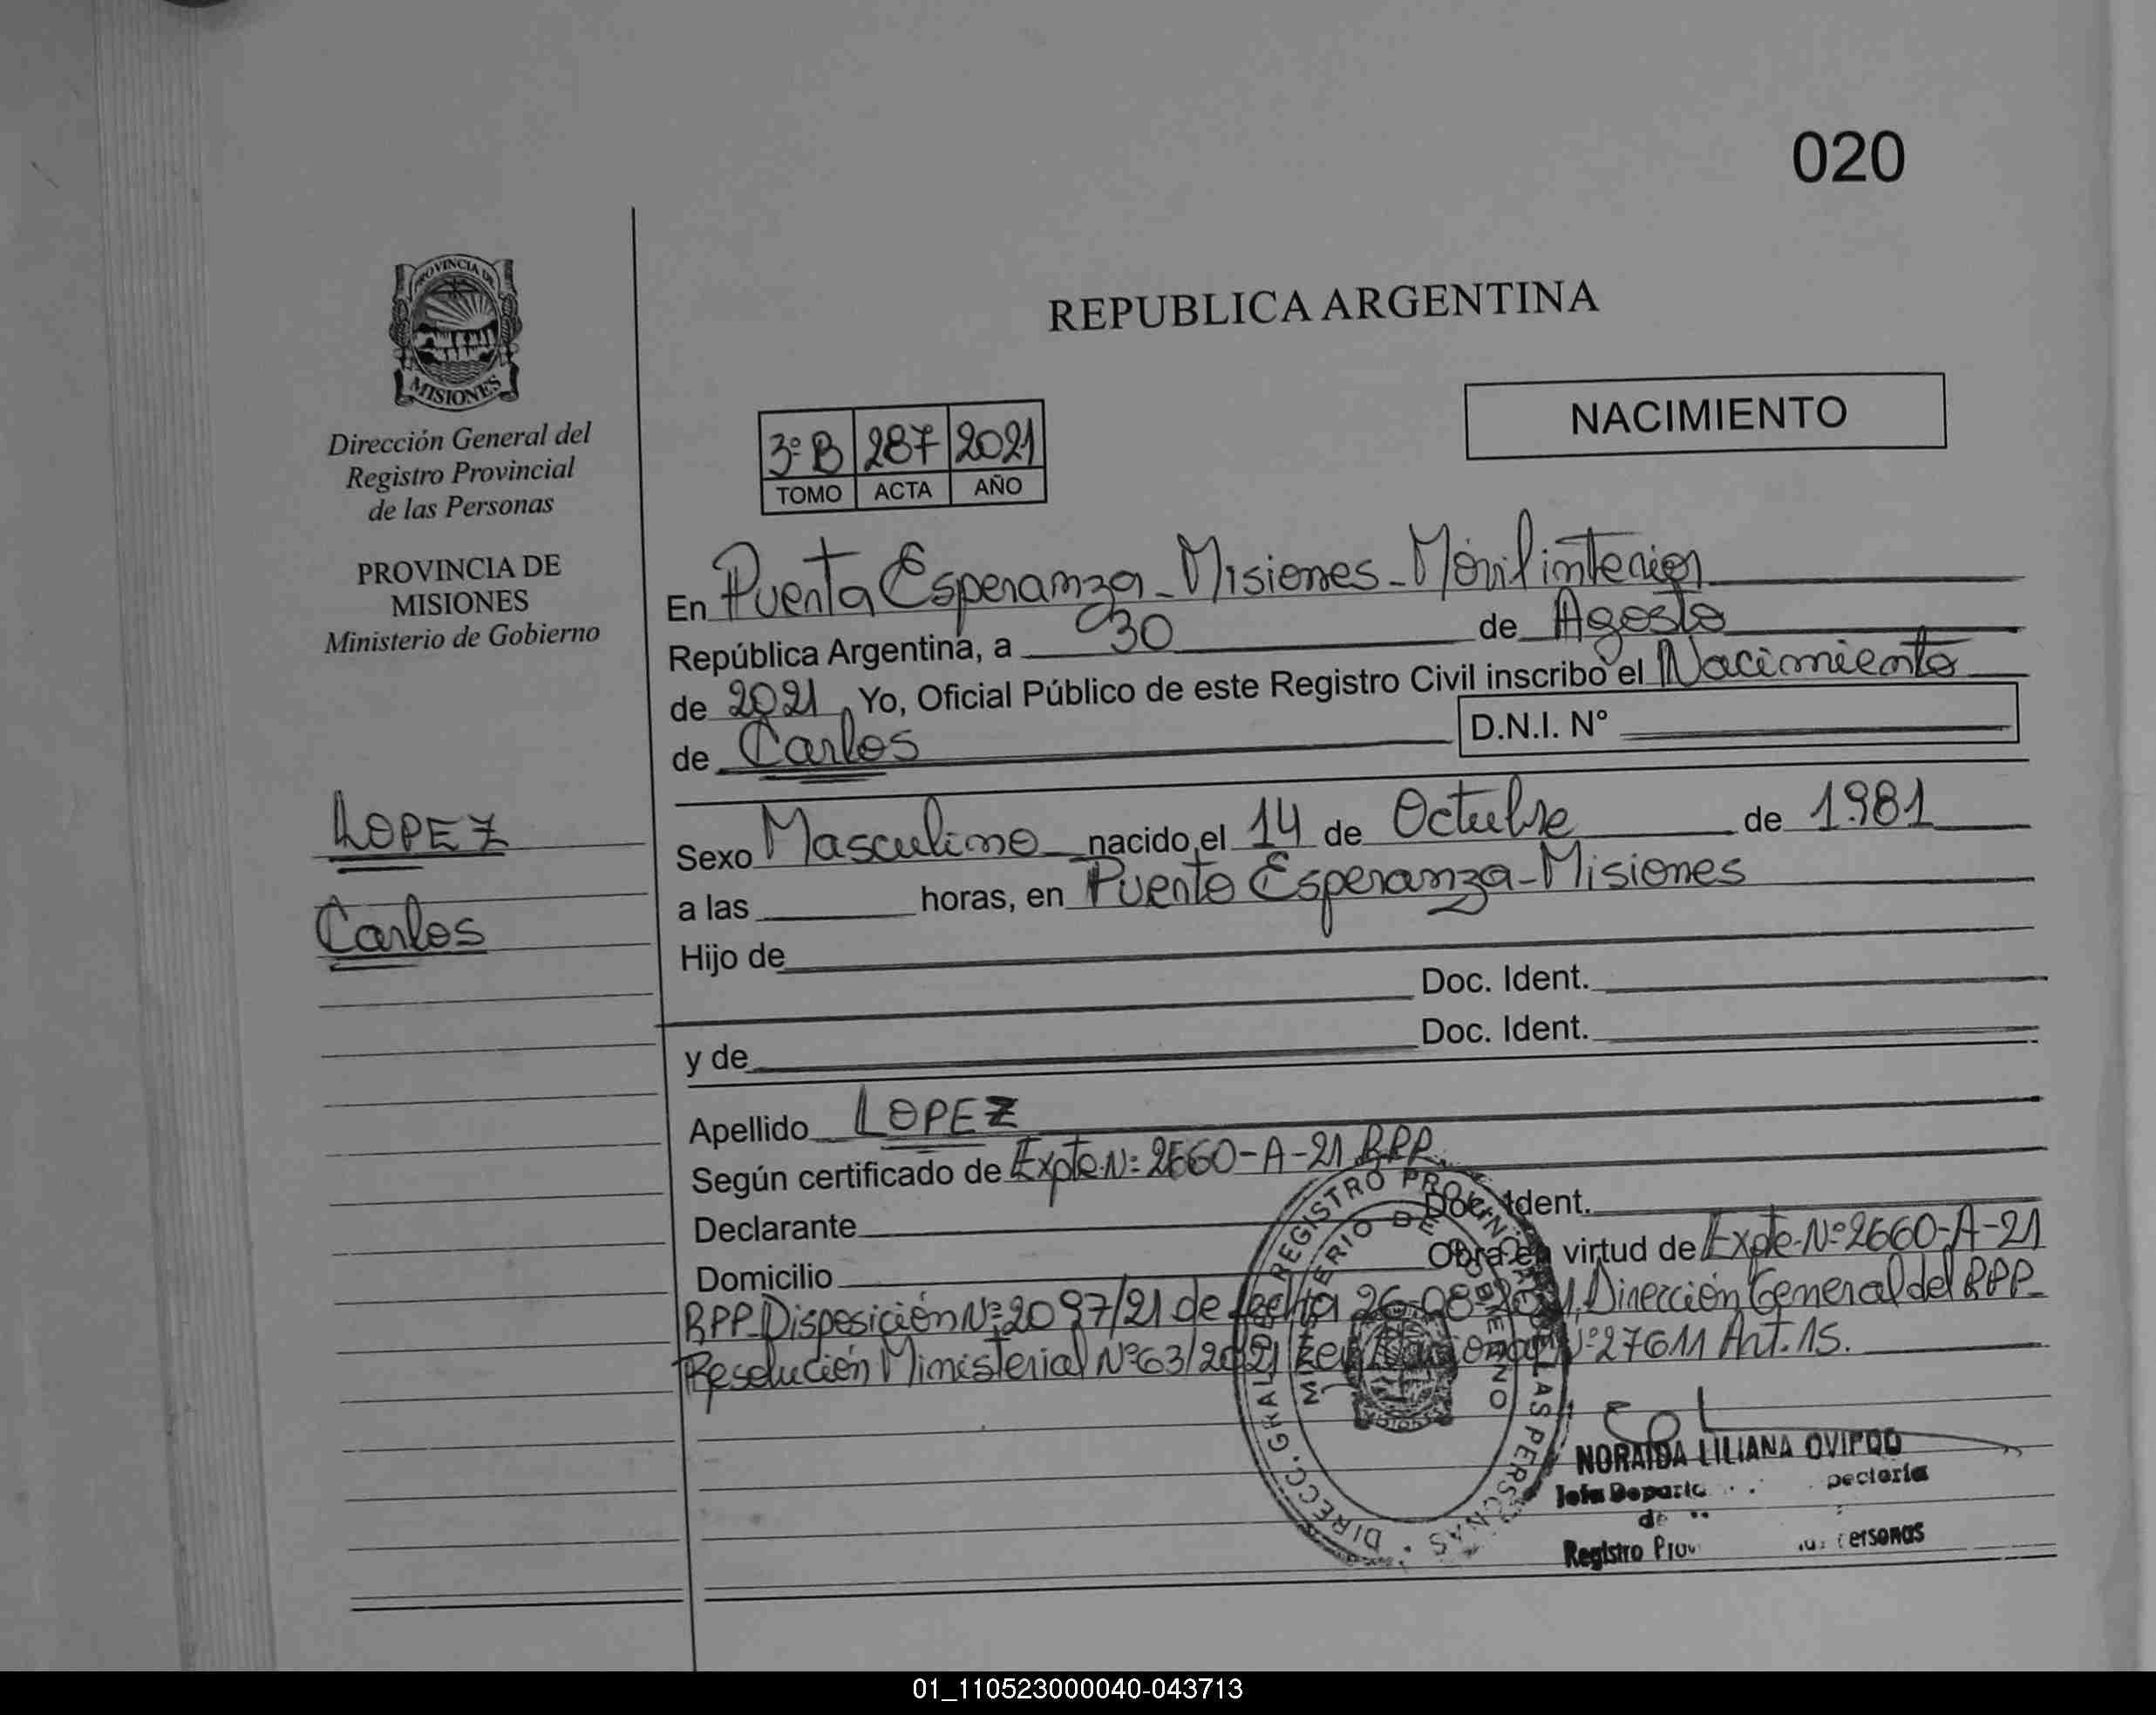 020
PROVINCIA DE
MISIONES
REPUBLICA ARGENTINA
NACIMIENTO
Dirección General del
Registro Provincial
de las Personas
PROVINCIA DE
MISIONES
Ministerio de Gobierno
3º B 287 2021
TOMO ACTA AÑO
En Puerto Esperanza - Misiones - Móvil interior
República Argentina, a 30 de Agosto
de 2021, Yo, Oficial Público de este Registro Civil inscribo el Nacimiento
de Carlos D.N.I. N°
LOPEZ
Carlos
Sexo Masculino nacido el 14 de Octubre de 1.981
a las horas, en Puerto Esperanza - Misiones
Hijo de
Doc. Ident.
y de Doc. Ident.
Apellido LOPEZ
Según certificado de Expte. Nº 2660-A-21 RPP.
Declarante Doc. Ident.
Domicilio Obra en virtud de Expte. Nº 2660-A-21
RPP. Disposición Nº 2097/21 de fecha 26-08-2021, Dirección General del RPP.
Resolución Ministerial Nº 63/2021 Ley Nacional Nº 27611 Art. 15.
DIRECC. GRAL. DEL REGISTRO PROVINCIAL DE LAS PERSONAS
MINISTERIO DE GOBIERNO
NORAIDA LILIANA OVIEDO
Jefa
de
Registro
01_110523000040-043713